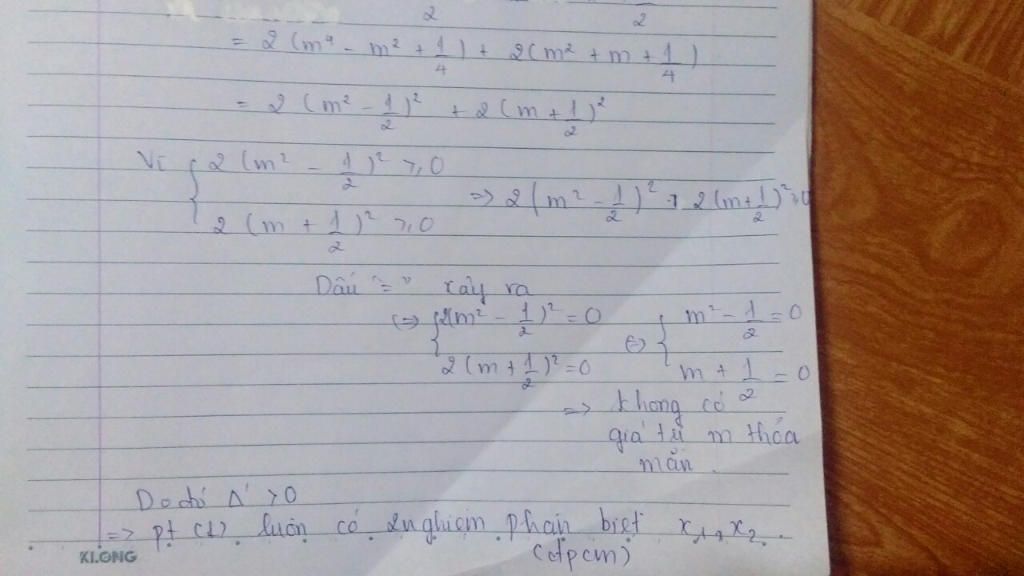 2 2
= 2 (m⁴ - m² + 1/4) + 2(m² + m + 1/4)
= 2 (m² - 1/2)² + 2 (m + 1/2)²
Vì { 2 (m² - 1/2)² ≥ 0
2 (m + 1/2)² ≥ 0
=> 2 (m² - 1/2)² + 2 (m + 1/2)² ≥ 0
Dấu "=" xảy ra
(=> { 2(m² - 1/2)² = 0
2 (m + 1/2)² = 0
(=> { m² - 1/2 = 0
m + 1/2 = 0
=> không có
giá trị m thỏa
mãn.
Do đó Δ' > 0
=> pt (1) luôn có 2 nghiệm phân biệt x₁, x₂.
(đpcm)
KLONG